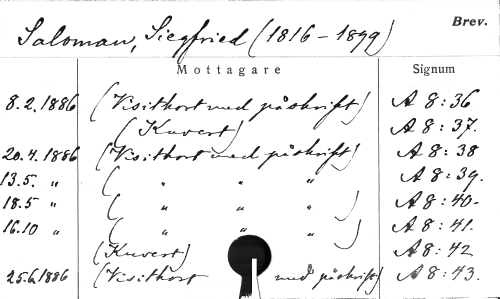 Brev.
Saloman, Siegfried (1816-1899)
Mottagare Signum
8.2.1886 (Visitkort med påskrift) A 8:36
(Kuvert) A 8:37.
20.4.1886 (Visitkort med påskrift) A 8:38
13.5. " ( " " " A 8:39.
18.5 " ( " " " ) A 8:40.
16.10 " ( " " " ) A 8:41.
(Kuvert) A 8:42
25.6.1886 (Visitkort med påskrift) A 8:43.